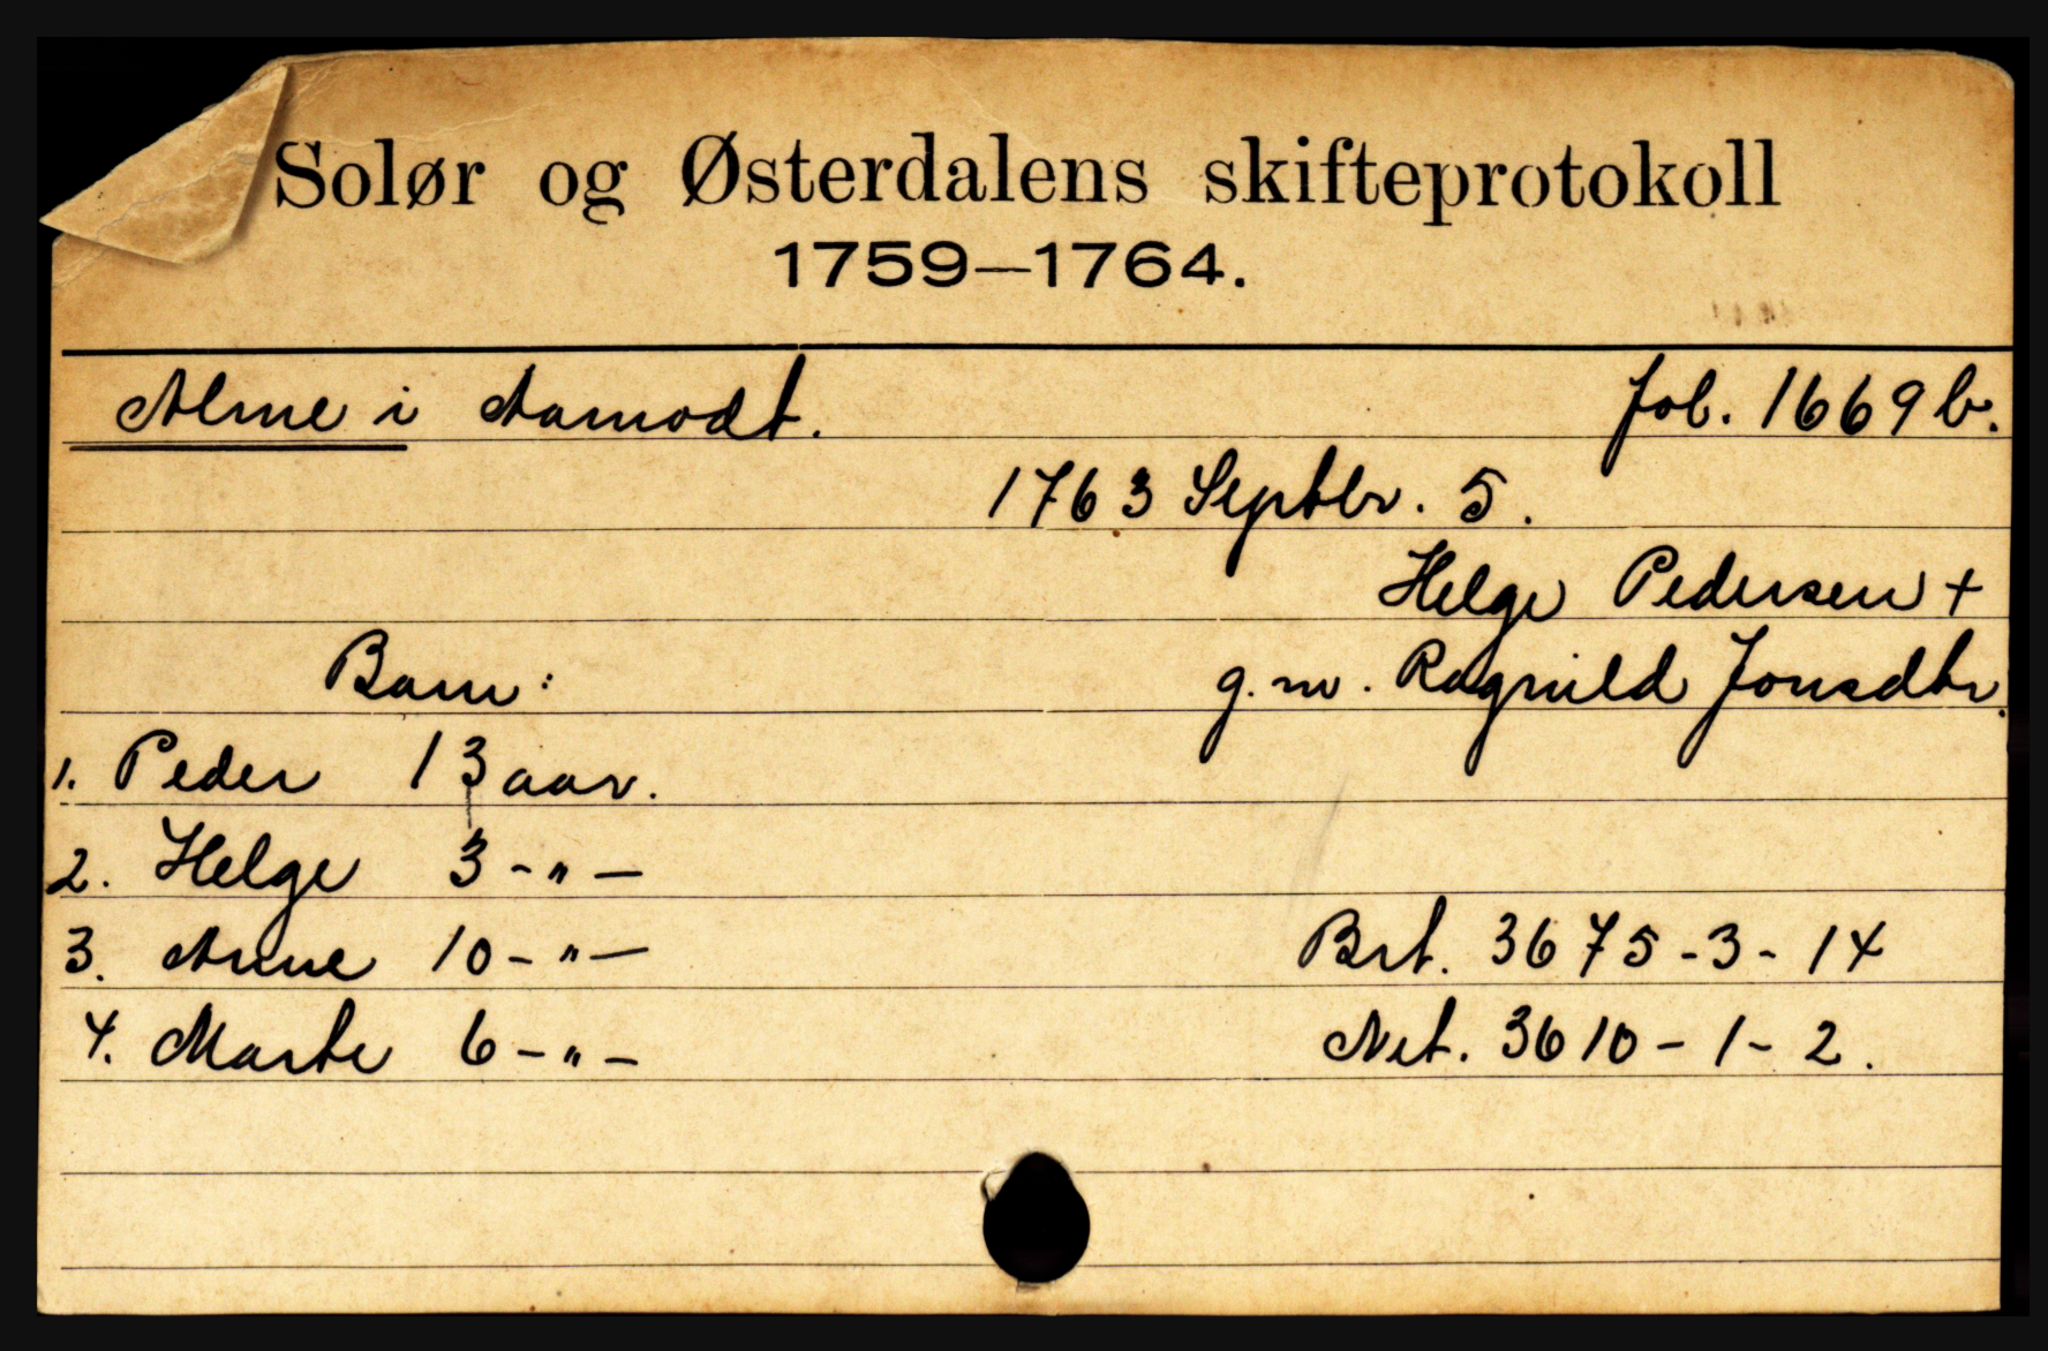 Solør og Østerdalens skifteprotokoll
1759—1764.
Alme i Aamodt. Fol. 1669 b.
1763 Septbr. 5.
Helge Pedersen +
Barn: g. m. Ragnild Jonsdtr.
1. Peder 13 aar.
2. Helge 3 - " -
3. Anne 10 - " - Brt. 3675 - 3 - 14
4. Marte 6 - " - Net. 3610 - 1 - 2.